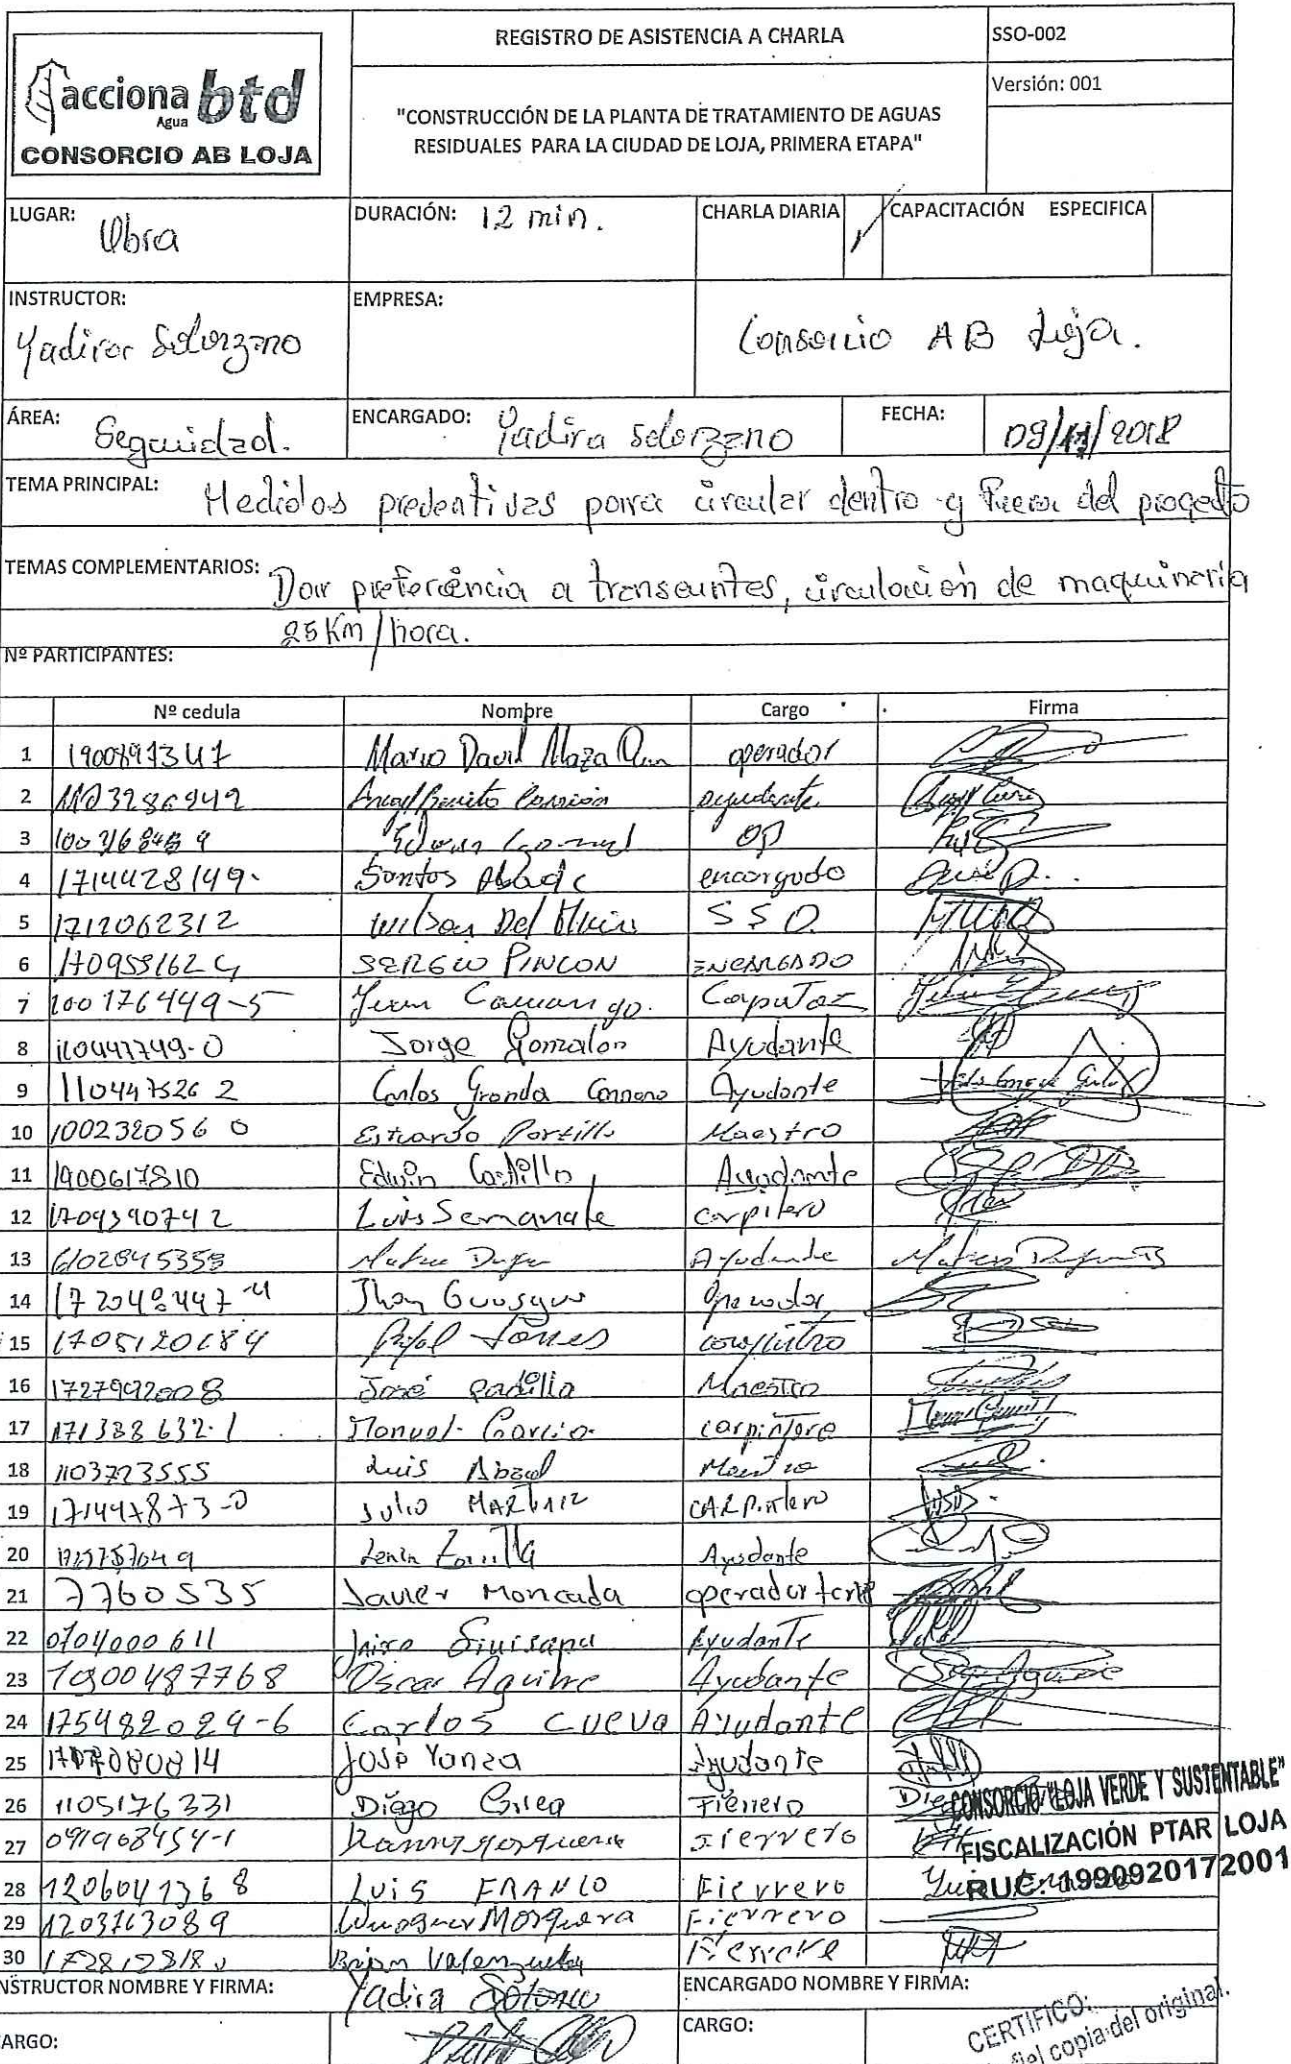 REGISTRO DE ASISTENCIA A CHARLA
SSO-002
Versión: 001
acciona Agua btd
CONSORCIO AB LOJA
"CONSTRUCCIÓN DE LA PLANTA DE TRATAMIENTO DE AGUAS
RESIDUALES PARA LA CIUDAD DE LOJA, PRIMERA ETAPA"
LUGAR: Obra
DURACIÓN: 12 min.
CHARLA DIARIA
CAPACITACIÓN ESPECIFICA
INSTRUCTOR: Yadira Solorzano
EMPRESA: Consorcio AB Loja.
ÁREA: Seguridad.
ENCARGADO: Yadira Solorzano
FECHA: 09/11/2018
TEMA PRINCIPAL: Medidas preventivas para circular dentro y fuera del proyecto
TEMAS COMPLEMENTARIOS: Dar preferencia a transeuntes, circulación de maquinaria
25 Km/hora.
Nº PARTICIPANTES:
Nº cedula Nombre Cargo Firma
1 1900897347 Mario David Maza operador
2 1103286942 Angel Benito Carrión ayudante
3 OP
4 1714428149. Santos Abad encargado
5 1712062312 Wilson Del SSO.
6 SERGIO PINCON ENCARGADO
7 100176449-5 Capataz
8 110441749-0 Jorge Gonzalon Ayudante
9 1104475262 Carlos Granda Ayudante
10 100232056 0 Estuardo Portillo Maestro
11 1900617810 Edwin Castillo Ayudante
12 1709390742 Luis Semanate carpitero
13 Ayudante
14 172048447-4 Jhon Operador
15 Torres
16 José Padilla Maestro
17 171388632-1 Manuel Garcia carpintero
18 1103723555 Luis Abad Maestro
19 171447873-0 Julio MARtiNIZ CARpintero
20 Lenin Ayudante
21 7760535 Javier Moncada operador
22 0704000611 Jairo Ayudante
23 1900487768 Oscar Aguirre Ayudante
24 175482029-6 Carlos Cueva Ayudante
25 José Yanza Ayudante
26 1105176331 Diego Fierrero
27 091968454-1 Fierrero
28 1206041368 Luis FRANCO Fierrero
29 1203763089 Mosquera Fierrero
30 Brian Valenzuela
CONSORCIO "LOJA VERDE Y SUSTENTABLE"
FISCALIZACIÓN PTAR LOJA
RUC: 1990920172001
NSTRUCTOR NOMBRE Y FIRMA: Yadira
ENCARGADO NOMBRE Y FIRMA:
ARGO:
CARGO:
CERTIFICO:
fiel copia del original.